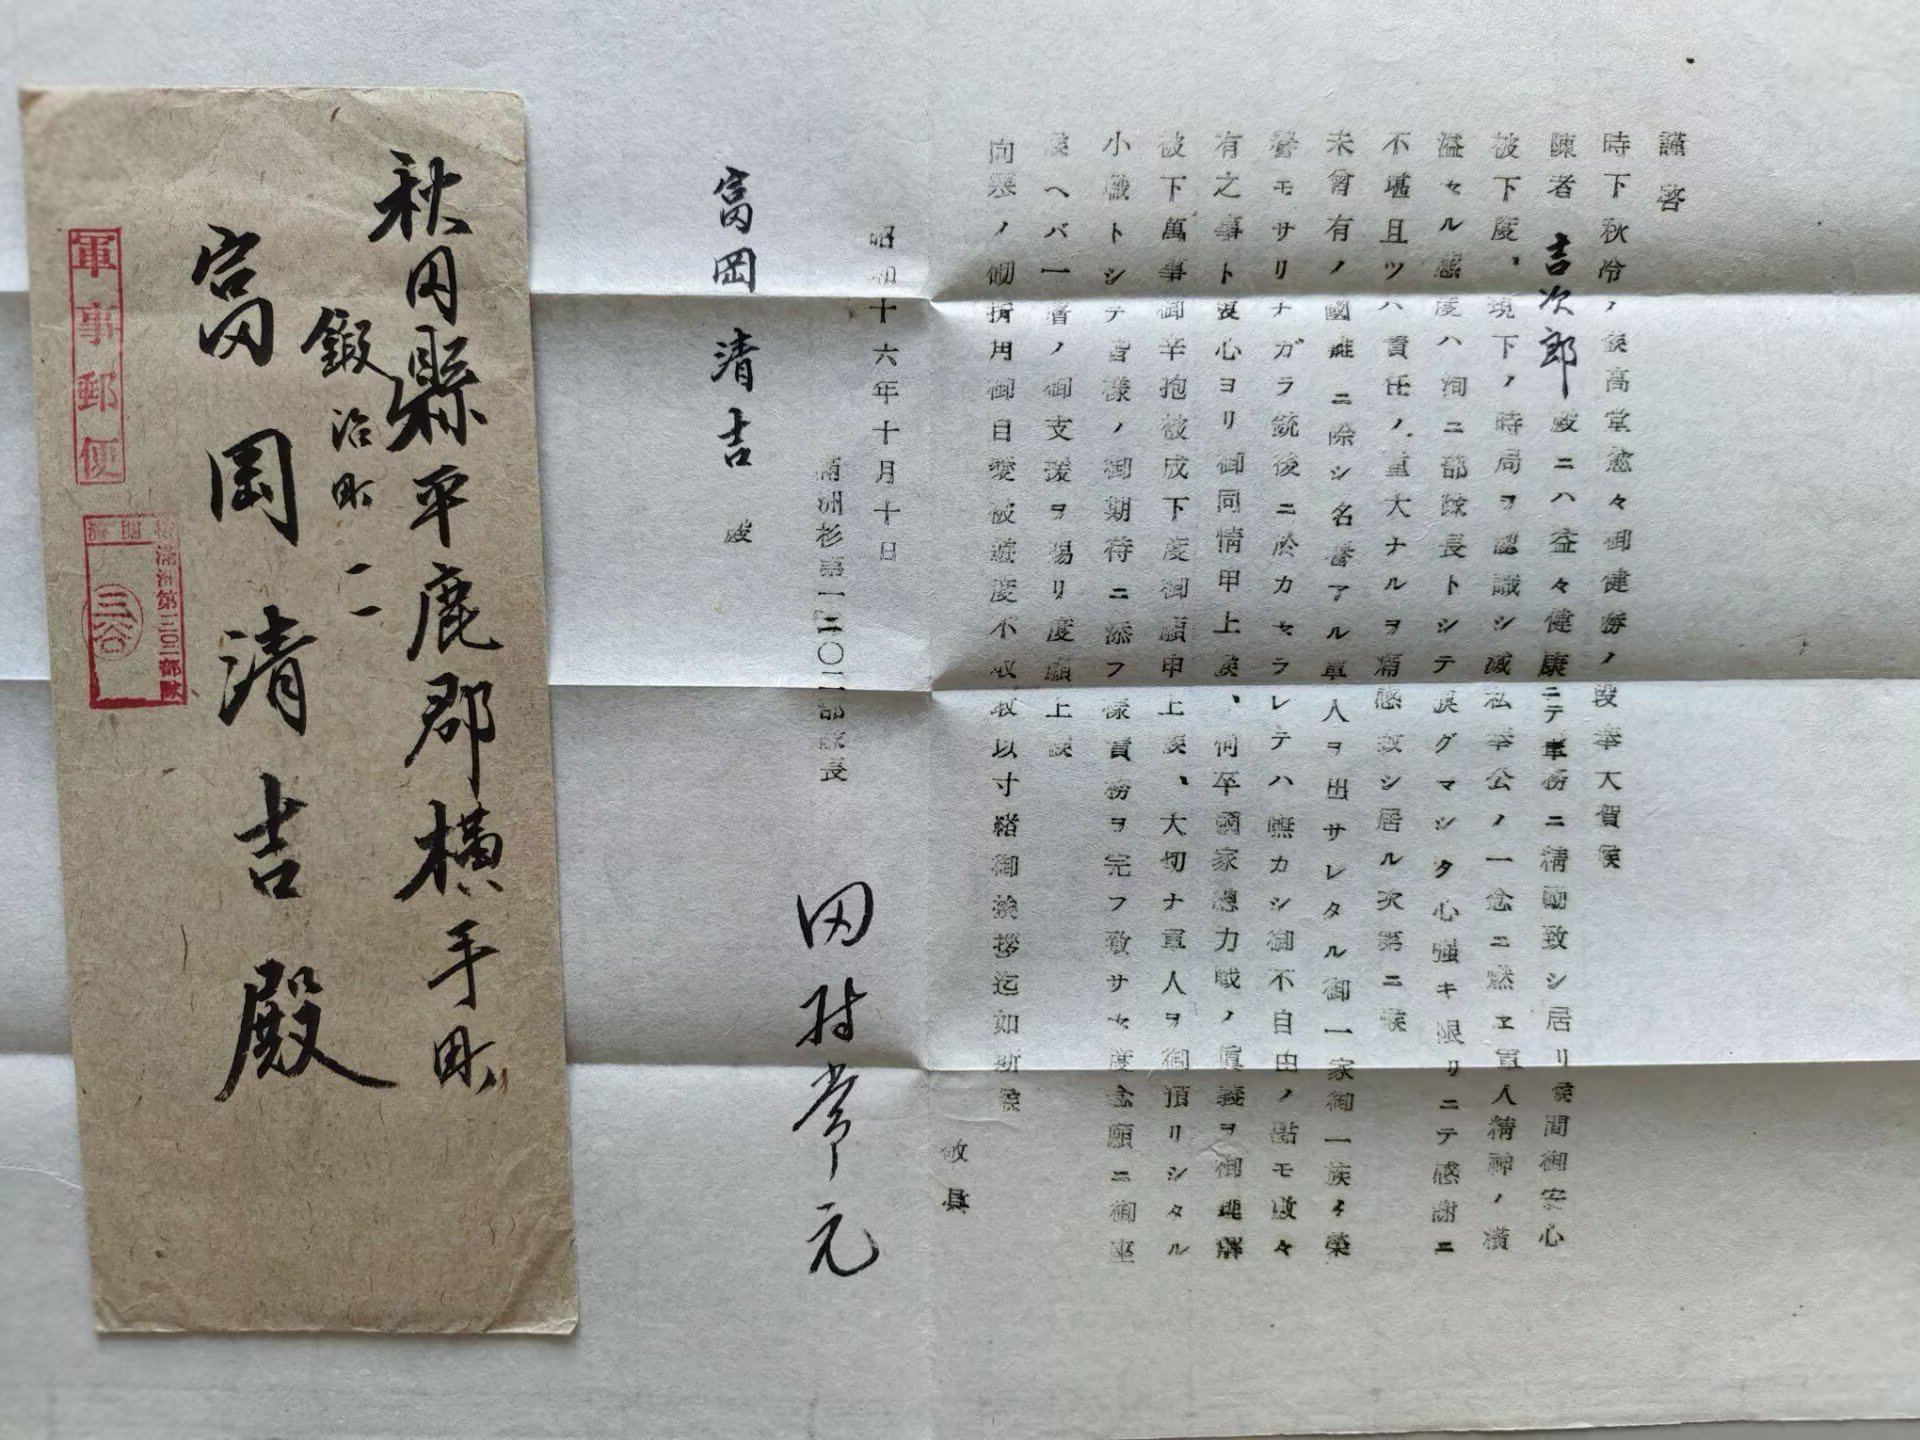 謹啓
時下秋冷ノ候高堂愈々御健勝ノ段奉大賀候
陳者 吉次郎 殿ニハ益々健康ニテ軍務ニ精勵致シ居リ候間御安心
被下度、現下ノ時局ヲ認識シ滅私奉公ノ一念ニ燃エ軍人精神ノ横
溢セル態度ハ洵ニ部隊長トシテ涙グマシク心強キ限リニテ感謝ニ
不堪且ツハ責任ノ重大ナルヲ痛感致シ居ル次第ニ候
未曾有ノ國難ニ際シ名譽アル軍人ヲ出サレタル御一家御一族ノ榮
譽モサリナガラ銃後ニ於カセラレテハ嘸カシ御不自由ノ點モ數々
有之事ト衷心ヨリ御同情申上候、何卒國家總力戰ノ眞義ヲ御理解
被下萬事御辛抱被成下度御願申上候、大切ナ軍人ヲ御預リシタル
小職トシテ皆樣ノ御期待ニ添フ樣責務ヲ完フ致サセ度念願ニ御座
候ヘバ一層ノ御支援ヲ賜リ度願上候
向寒ノ砌折角御自愛被遊度不取敢以寸楮御挨拶迄如斯候
敬具
昭和十六年十月十日
滿洲杉第一二〇二部隊長
田村常元
富岡 清吉 殿
秋田縣平鹿郡横手町
鍛冶町二一
富岡清吉殿
軍事郵便
檢閲濟
三谷